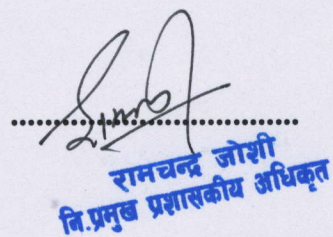 रामचन्द्र जोशी
नि.प्रमुख प्रशासकीय अधिकृत